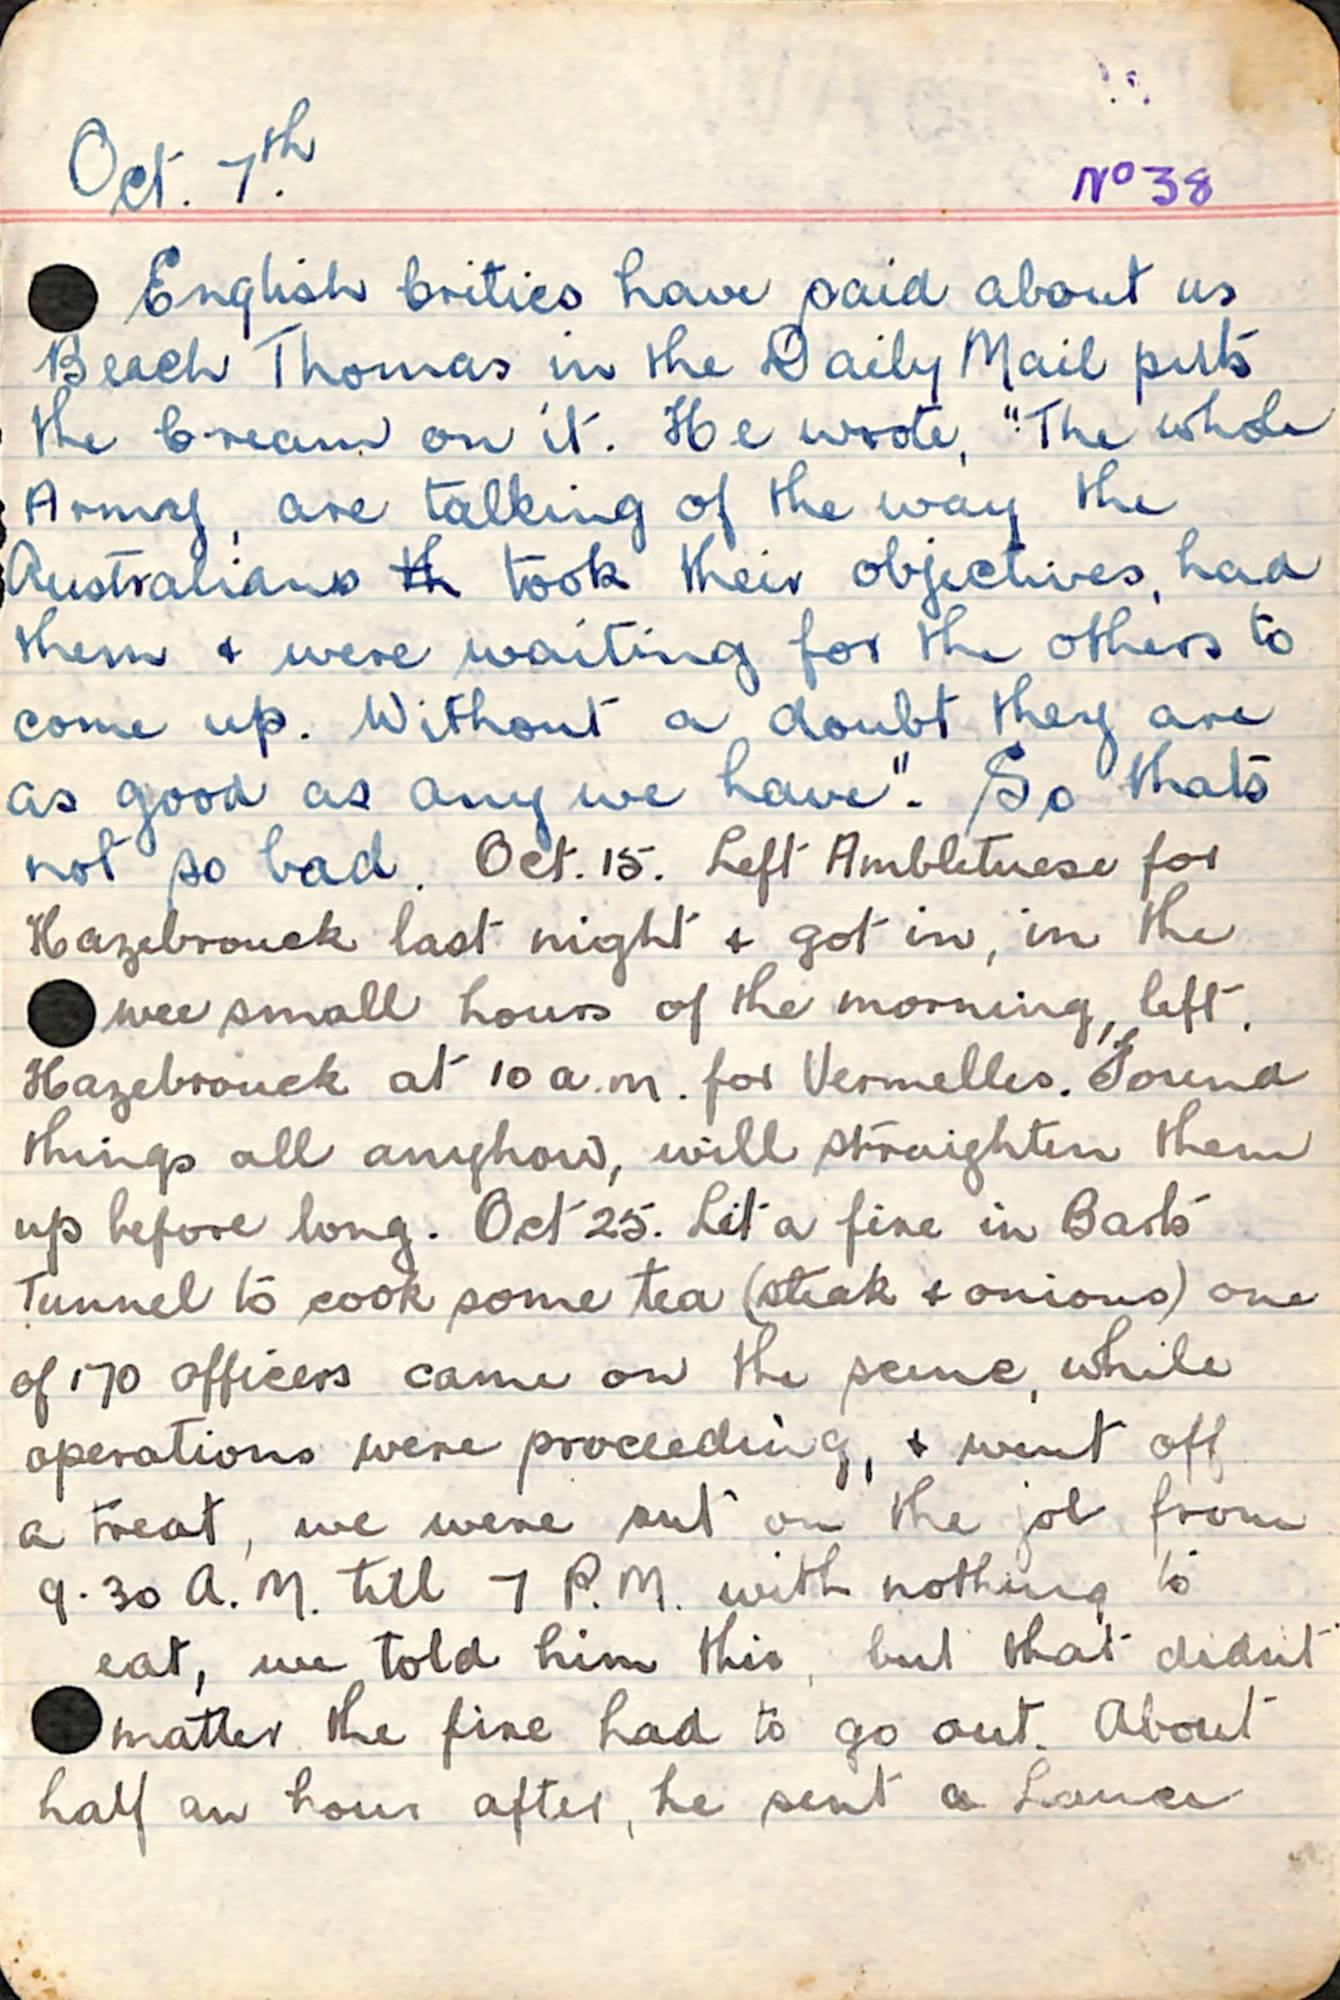 Oct. 7th.
No 38
English Critics have said about us
Beach Thomas in the Daily Mail puts
the Cream on it. He wrote, "The whole
Army, are talking of the way the
Australians th took their objectives, had
them & were waiting for the others to
come up. Without a doubt they are
as good as any we have". So thats
not so bad. Oct. 15. Left Ambletuese for
Hazebrouck last night & got in, in the
wee small hours of the morning, left.
Hazebrouck at 10 a.m. for Vermelles. Found
things all anyhow, will straighten them
up before long. Oct 25. Lit a fire in Barts
Tunnel to cook some tea (steak & onions) one
of 170 officers came on the scene, while
operations were proceeding, & went off
a treat, we were sent on the job from
9.30 A.M. till 7 P.M. with nothing to
eat, we told him this, but that didnt
matter the fire had to go out. About
half an hour after, he sent a Lance